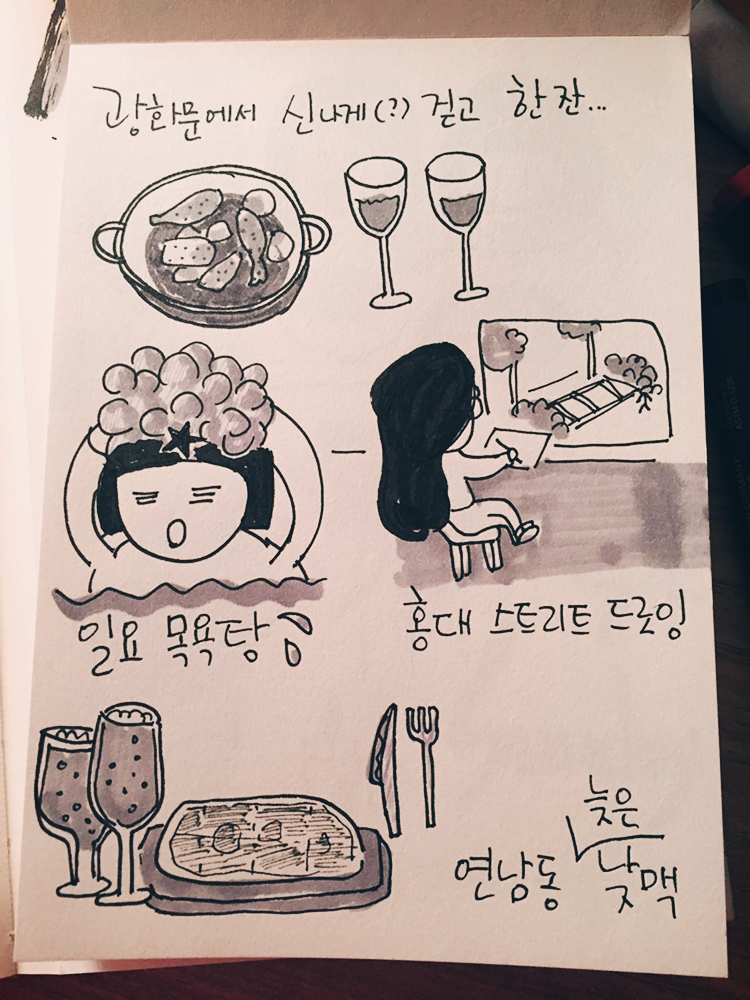 광화문에서 신나게(?) 걷고 한잔...
일요 목욕탕
홍대 스트리트 드로잉
늦은
연남동 낮맥